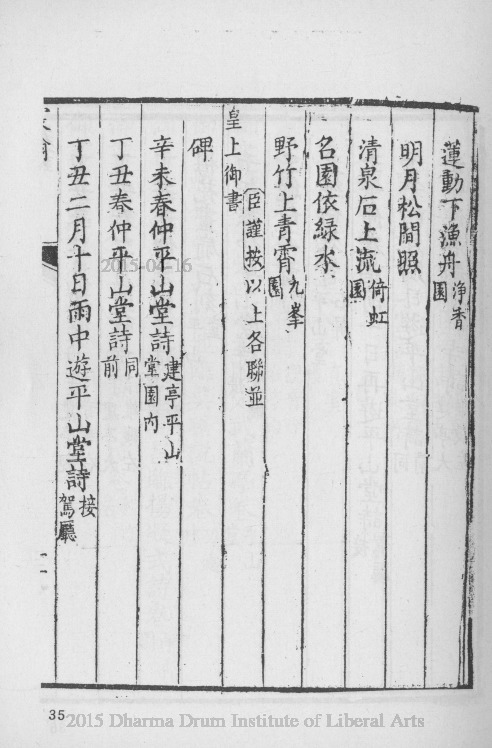 蓮動下漁舟淨香園
明月松間照
清泉石上流倚虹園
名園依緑水
野竹上青霄九峯園
臣謹按以上各聯並
皇上御書
碑
辛未春仲平山堂詩建亭平山堂園内
丁丑春仲平山堂詩同前
丁丑二月十日雨中遊平山堂詩接駕廳
2015-04-16
35
2015 Dharma Drum Institute of Liberal Arts